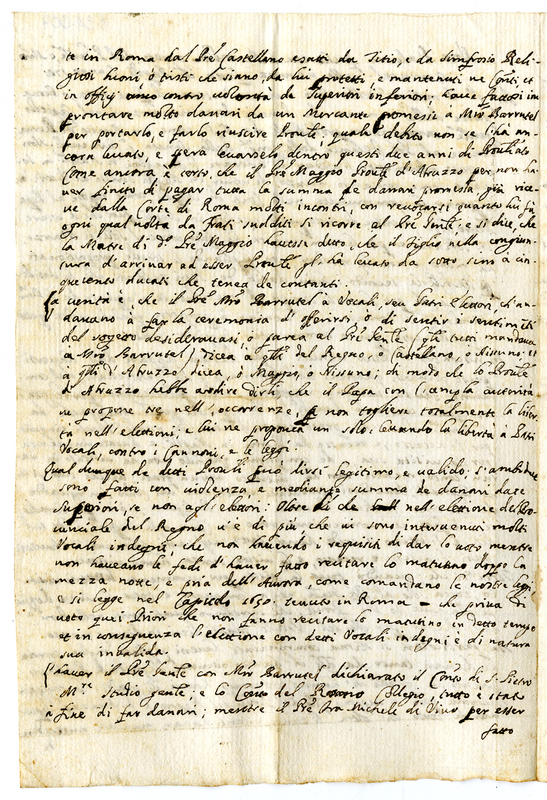 te in Roma dal Pre Castellano esatti da Titio, e da Sinfrosio Reli-
giosi buoni ò tristi che siano, da lui protetti, e mantenuti ne Conti et
in officij contro volontà de Superiori inferiori; have fattosi im
prontare molto danari da un Mercante promessi a Mro Barrutel
per portarlo, e farlo riuscire Proule; quale debito non se l'hà an-
cora levato, e spera levarselo dentro questi due anni di Proulato
Come ancora è certo, che il Pre Maggio Proule d'Abruzzo per non ha-
ver finito di pagar tutta la summa de danari promessa, più rice-
ve dalla Corte di Roma molti incontri, con revocarsi quanto lui fà
ogni qual volta da Frati sudditi si ricorre al Pre Gnle; e si dice, che
la Matre di do Pre Maggio havesse detto, che il figlio nella congiun-
tura d'arrivar ad esser Proule gl'ha levato da sotto sino à cin-
quecento ducati che tenea de contanti.
La verità è, che il Pre Mro Barrutel à Vocali, seu Patri elettori, ch'an-
davano à far la ceremonia d'offerirsi, ò di sentir i sentimti
del sogetto desideravasi, ò parea al Pre Gnle (gli tutti mandava
a Mro Barrutel) dicea a qlli del Regno, ò Castellano, ò Nissuno; et
a qlli d'Abruzzo dicea, ò Maggio, ò Nissuno; di modo che lo Proule
d'Abruzzo hebbe ardire dirli che il Papa con esempla
ne propone tre nell'occorrenze, p non togliere totalmente la liber-
tà nell'elettioni; e lui ne proponea un solo, levando la libertà à Patri
Vocali, contro i Cannoni, e le leggi.
Qual dunque de detti Prouli può dirsi legitimo, e valido: s'ambidue
sono fatti con violenza, e mediante summa de danari date
Superiori, se non agl'elettori: Oltre di che nell'elettione del Pro-
vinciale del Regno v'è di più che vi sono intervenuti molti
Vocali indegni; che non havendo i requisiti di dar lo voto mentre
non haveano le fedi d'haver fatto recitare lo matutino doppo la
mezza notte, e pria dell'Aurora, come comandano le nostre leggi
e si legge nel Capitolo 1650. tenuto in Roma - che priva di
voto quei Priori che non fanno recitare lo matutino in detto tempo
et in consequenza l'elettione con detti Vocali indegni è di natura
sua invalida.
L'haver il Pre Gnle con Mro Barrutel dichiarato il Conto di S. Pietro
Mre studio gnle; e lo Conto del Rosario Collegio, tutto è stato
à fine di far danari; mentre il Pre fra Michele di Vivo per esser
fatto